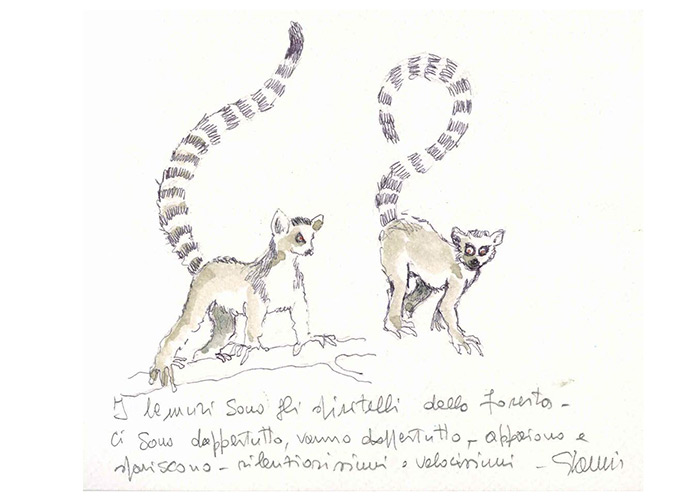 I lemuri sono gli spiritelli della foresta -
ci sono dappertutto, vanno dappertutto - appaiono e
spariscono - silenziosissimi e velocissimi -